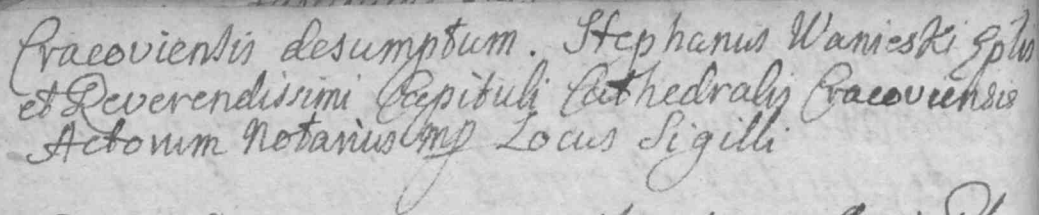 Cracoviensis desumptum. Stephanus Wanieski Eplis
et Reverendissimi Capituli Cathedralis Cracoviensis
Actorum Notarius mp Locus Sigilli